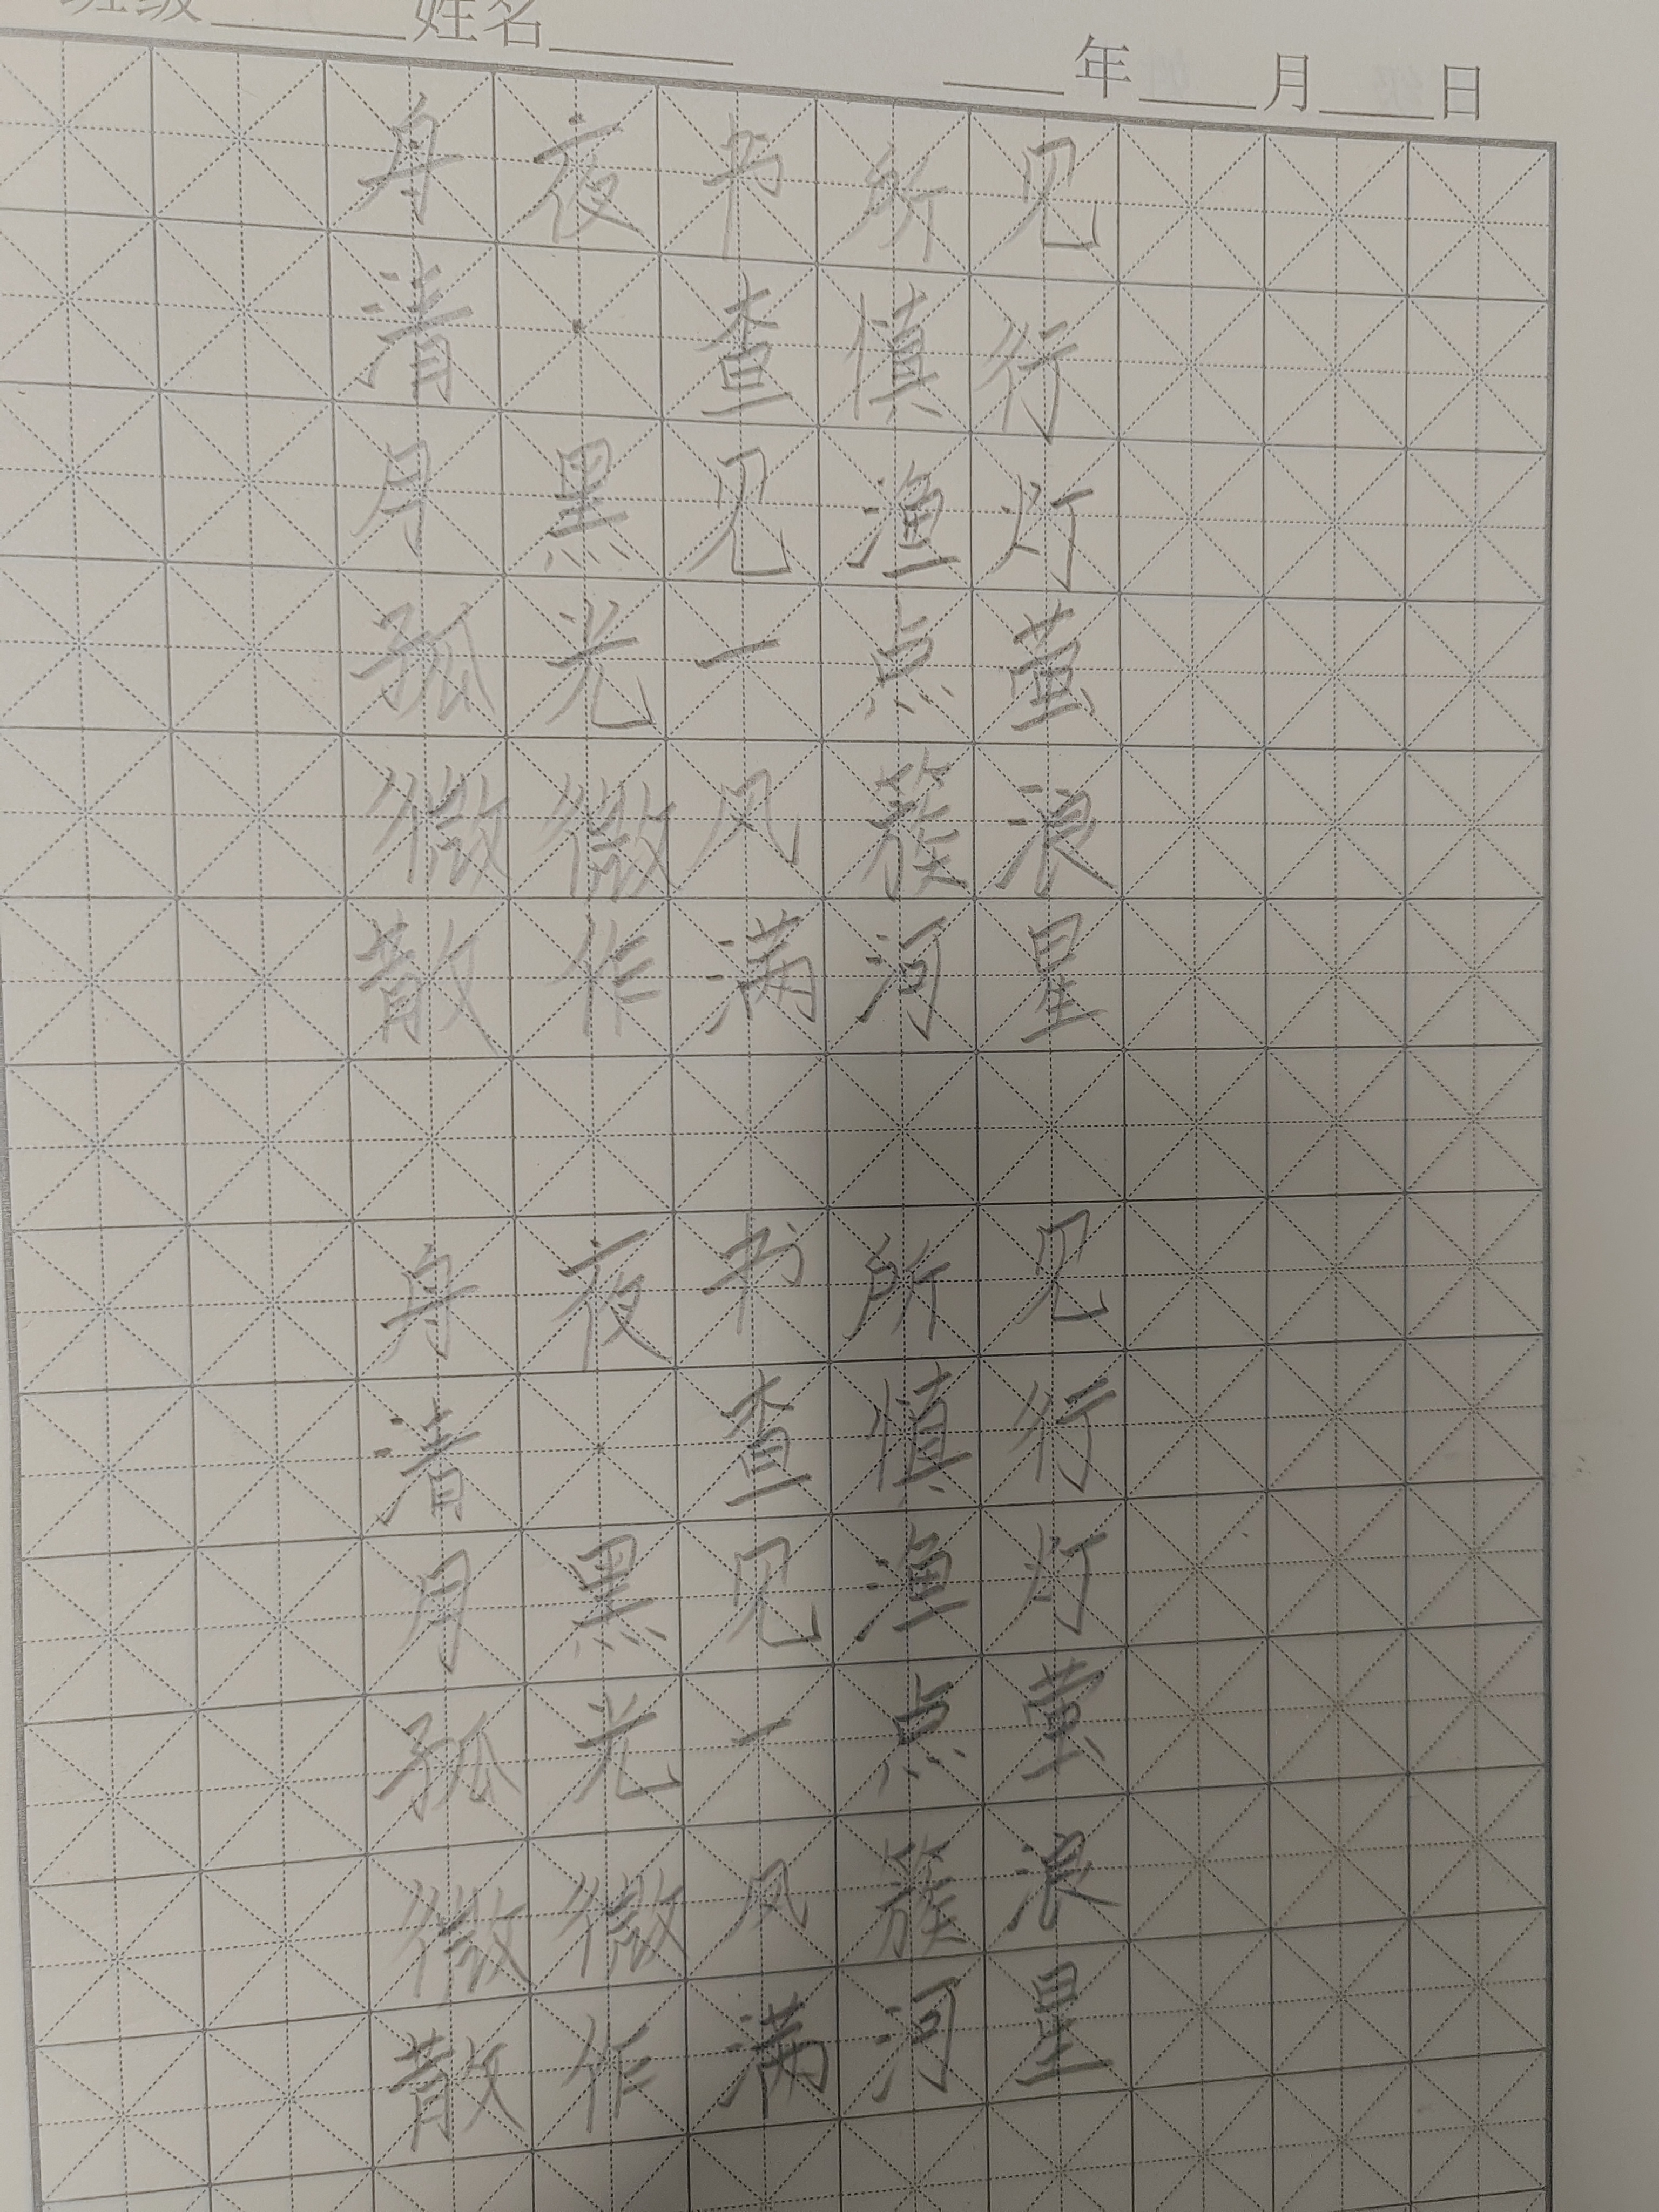 班级 姓名 年 月 日
舟夜书所见
清·查慎行
月黑见渔灯
孤光一点萤
微微风簇浪
散作满河星
舟夜书所见
清·查慎行
月黑见渔灯
孤光一点萤
微微风簇浪
散作满河星